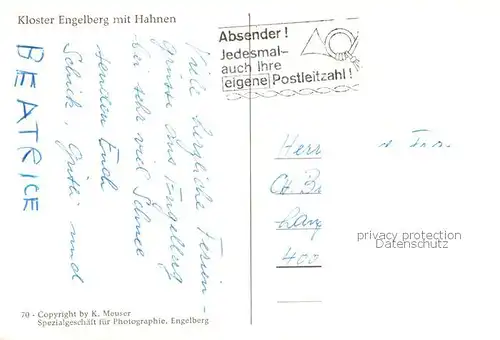 Kloster Engelberg mit Hahnen
Absender !
Jedesmal-
auch Ihre
eigene Postleitzahl !
Viele herzliche Ferien-
grüsse aus Engelberg
bei sehr viel Schnee
senden Euch
Gritli und
BEATRICE
Herr
CH
400
privacy protection
Datenschutz
70 - Copyright by K. Meuser
Spezialgeschäft für Photographie, Engelberg